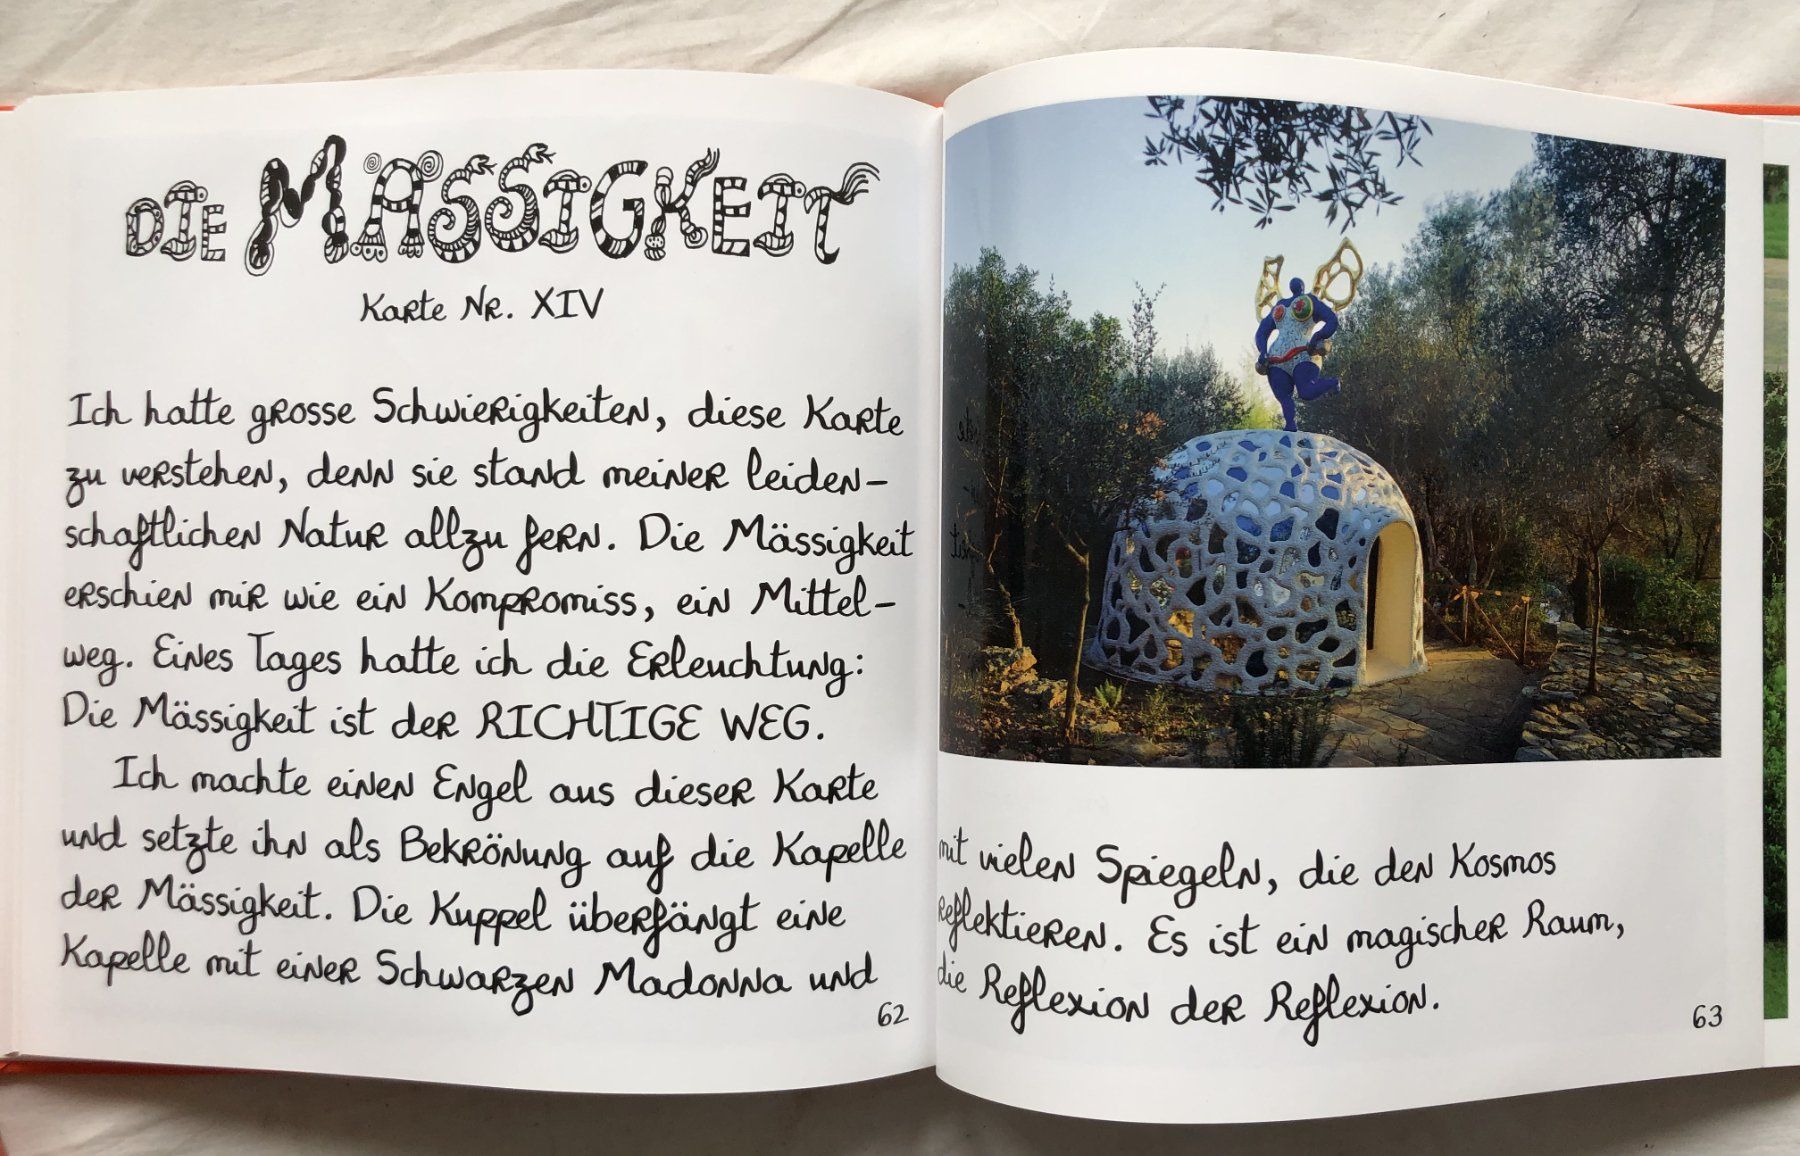 DIE MÄSSIGKEIT
Karte Nr. XIV
Ich hatte grosse Schwierigkeiten, diese Karte
zu verstehen, denn sie stand meiner leiden-
schaftlichen Natur allzu fern. Die Mässigkeit
erschien mir wie ein Kompromiss, ein Mittel-
weg. Eines Tages hatte ich die Erleuchtung:
Die Mässigkeit ist der RICHTIGE WEG.
Ich machte einen Engel aus dieser Karte
und setzte ihn als Bekrönung auf die Kapelle
der Mässigkeit. Die Kuppel überfängt eine
Kapelle mit einer Schwarzen Madonna und
62
mit vielen Spiegeln, die den Kosmos
reflektieren. Es ist ein magischer Raum,
die Reflexion der Reflexion.
63